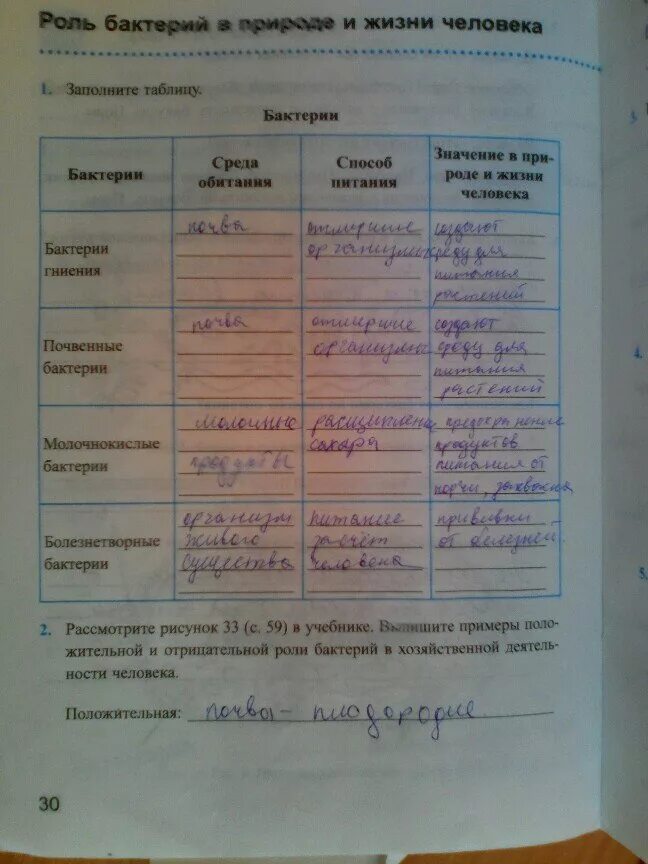 Роль бактерий в природе и жизни человека
1. Заполните таблицу.
Бактерии
Бактерии
Среда обитания
Способ питания
Значение в при-
роде и жизни
человека
Бактерии
гниения
почва
отмершие
организмы
создают
среду для
питания
растений
Почвенные
бактерии
почва
отмершие
организмы
создают
среду для
питания
растений
Молочнокислые
бактерии
молочные
продукты
сахара
продуктов
питания от
порчи, закваска
Болезнетворные
бактерии
организм
живого
существа
питание
за счёт
человека
прививки
от болезней
2. Рассмотрите рисунок 33 (с. 59) в учебнике. Выпишите примеры поло-
жительной и отрицательной роли бактерий в хозяйственной деятель-
ности человека.
Положительная: почва - плодородие
30
3
4.
5.